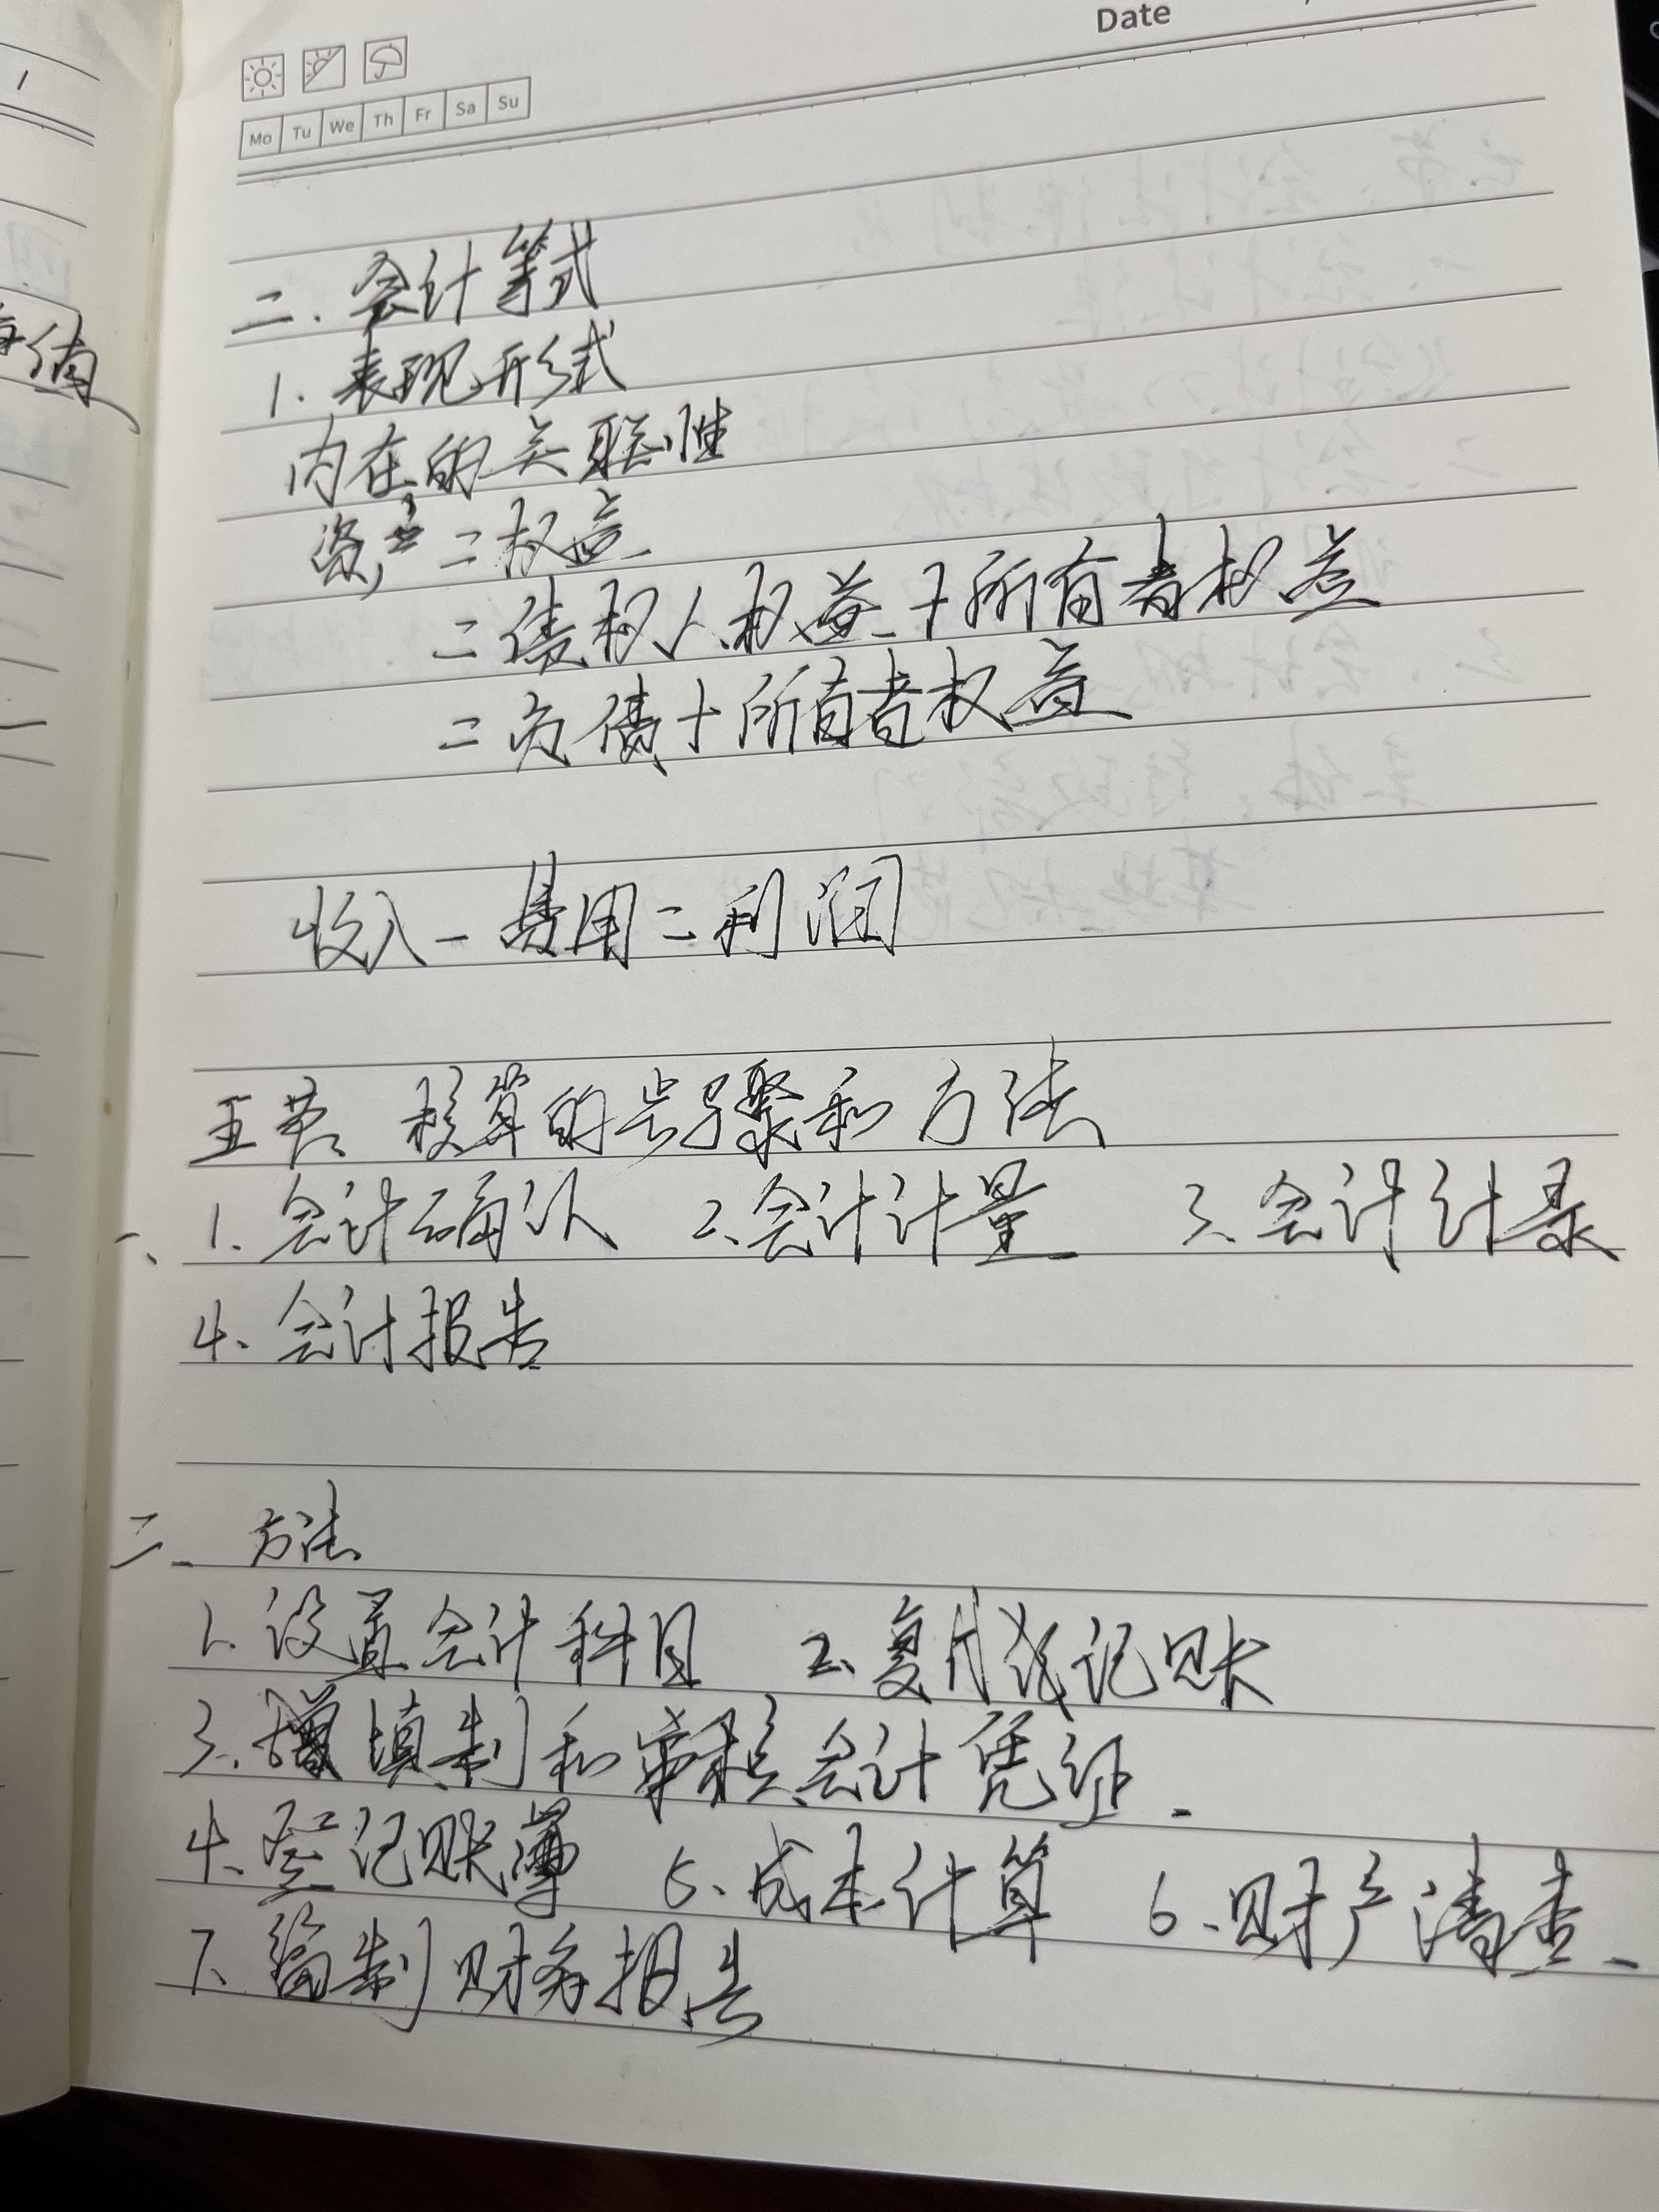 Date
Mo Tu We Th Fr Sa Su
二.会计等式
1.表现形式
内在的关联性
资产=权益
=债权人权益+所有者权益
=负债+所有者权益
收入-费用=利润
五节、核算的步骤和方法
一、1.会计确认 2、会计计量 3、会计计录
4、会计报告
二、方法
1.设置会计科目 2、复式记账
3、填制和审核会计凭证.
4、登记账薄 5、成本计算 6、财产清查、
7、编制财务报告